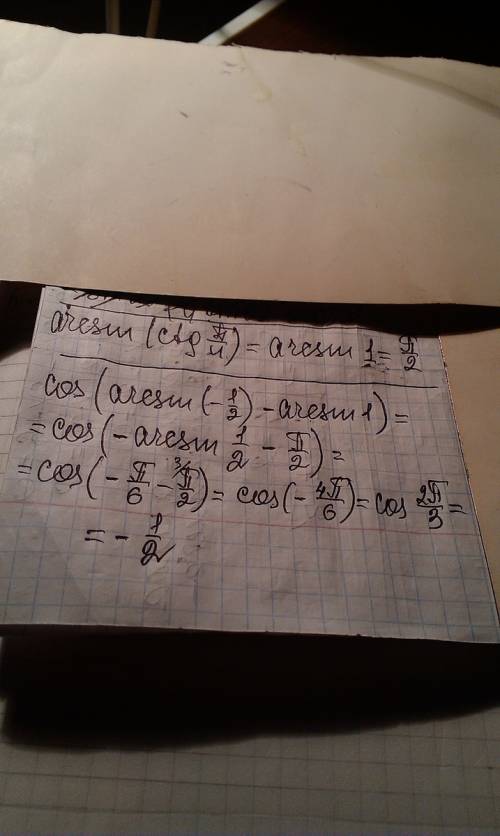 arcsin (ctg π/4) = arcsin 1 = π/2
cos(arcsin(-1/2) - arcsin 1) =
= cos(-arcsin 1/2 - π/2) =
= cos(-π/6 - π/2 3/) = cos(-4π/6) = cos 2π/3 =
= - 1/2